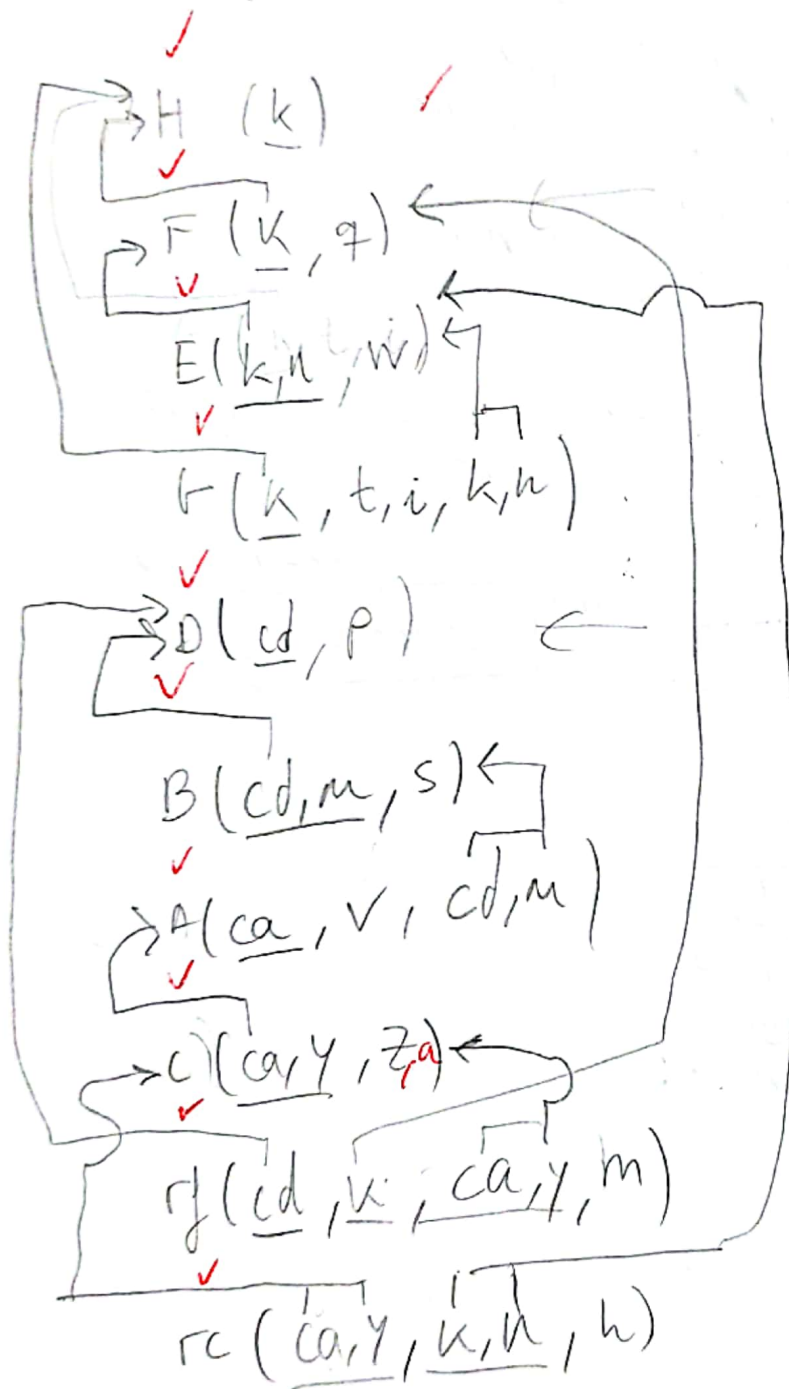 H (k)
F (k, q)
E(k,n, w)
G(k, t, i, k,n)
D(cd, p)
B(cd,m, s)
A(ca, v, cd,m)
C(ca,y, z,a)
rf(cd, k, ca,y, m)
rc(ca,y, k,n, h)